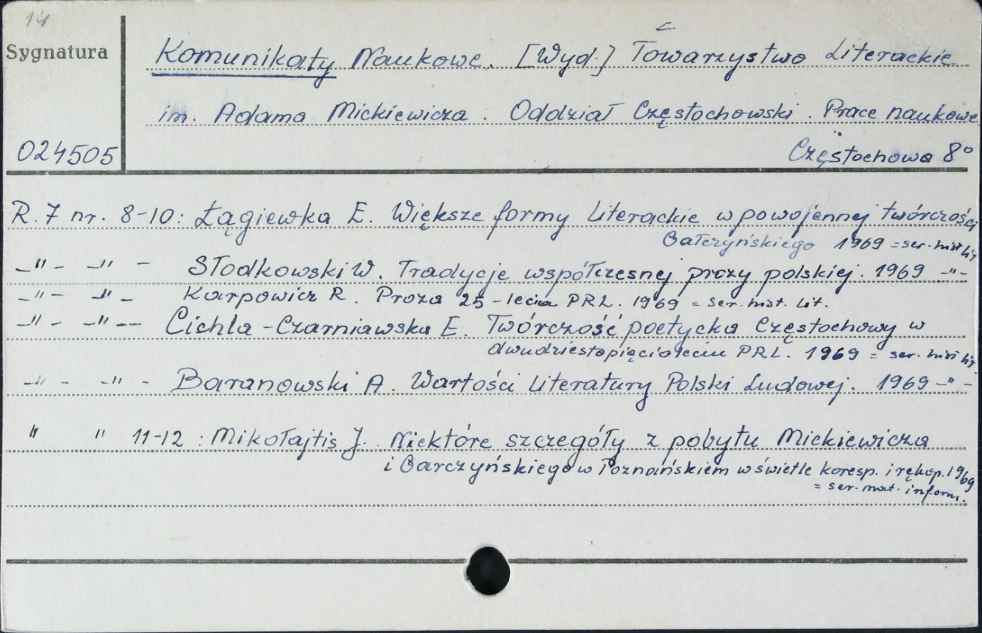 14
Sygnatura
Komunikaty Naukowe. [Wyd.] Towarzystwo Literackie
im. Adama Mickiewicza. Oddział Częstochowski. Prace naukowe
024505
Częstochowa 8°
R. 7 nr. 8-10: Łągiewka E. Większe formy literackie w powojennej twórczości
Gałczyńskiego 1969 = ser. hist lit
-"- -"- Słodkowski W. Tradycje współczesnej prozy polskiej. 1969 -"-
-"- -"- Karpowicz R. Proza 25-lecia PRL. 1969 = ser. hist. lit.
-"- -"- Cichla-Czarniawska E. Twórczość poetycka Częstochowy w
dwudziestopięcioleciu PRL. 1969 = ser. hist lit.
-"- -"- Baranowski A. Wartości literatury Polski Ludowej. 1969 -"-
" " 11-12 : Mikołajtis J. Niektóre szczegóły z pobytu Mickiewicza
i Garczyńskiego w Poznańskiem w świetle koresp. i rękop. 1969
= ser. mat. inform.